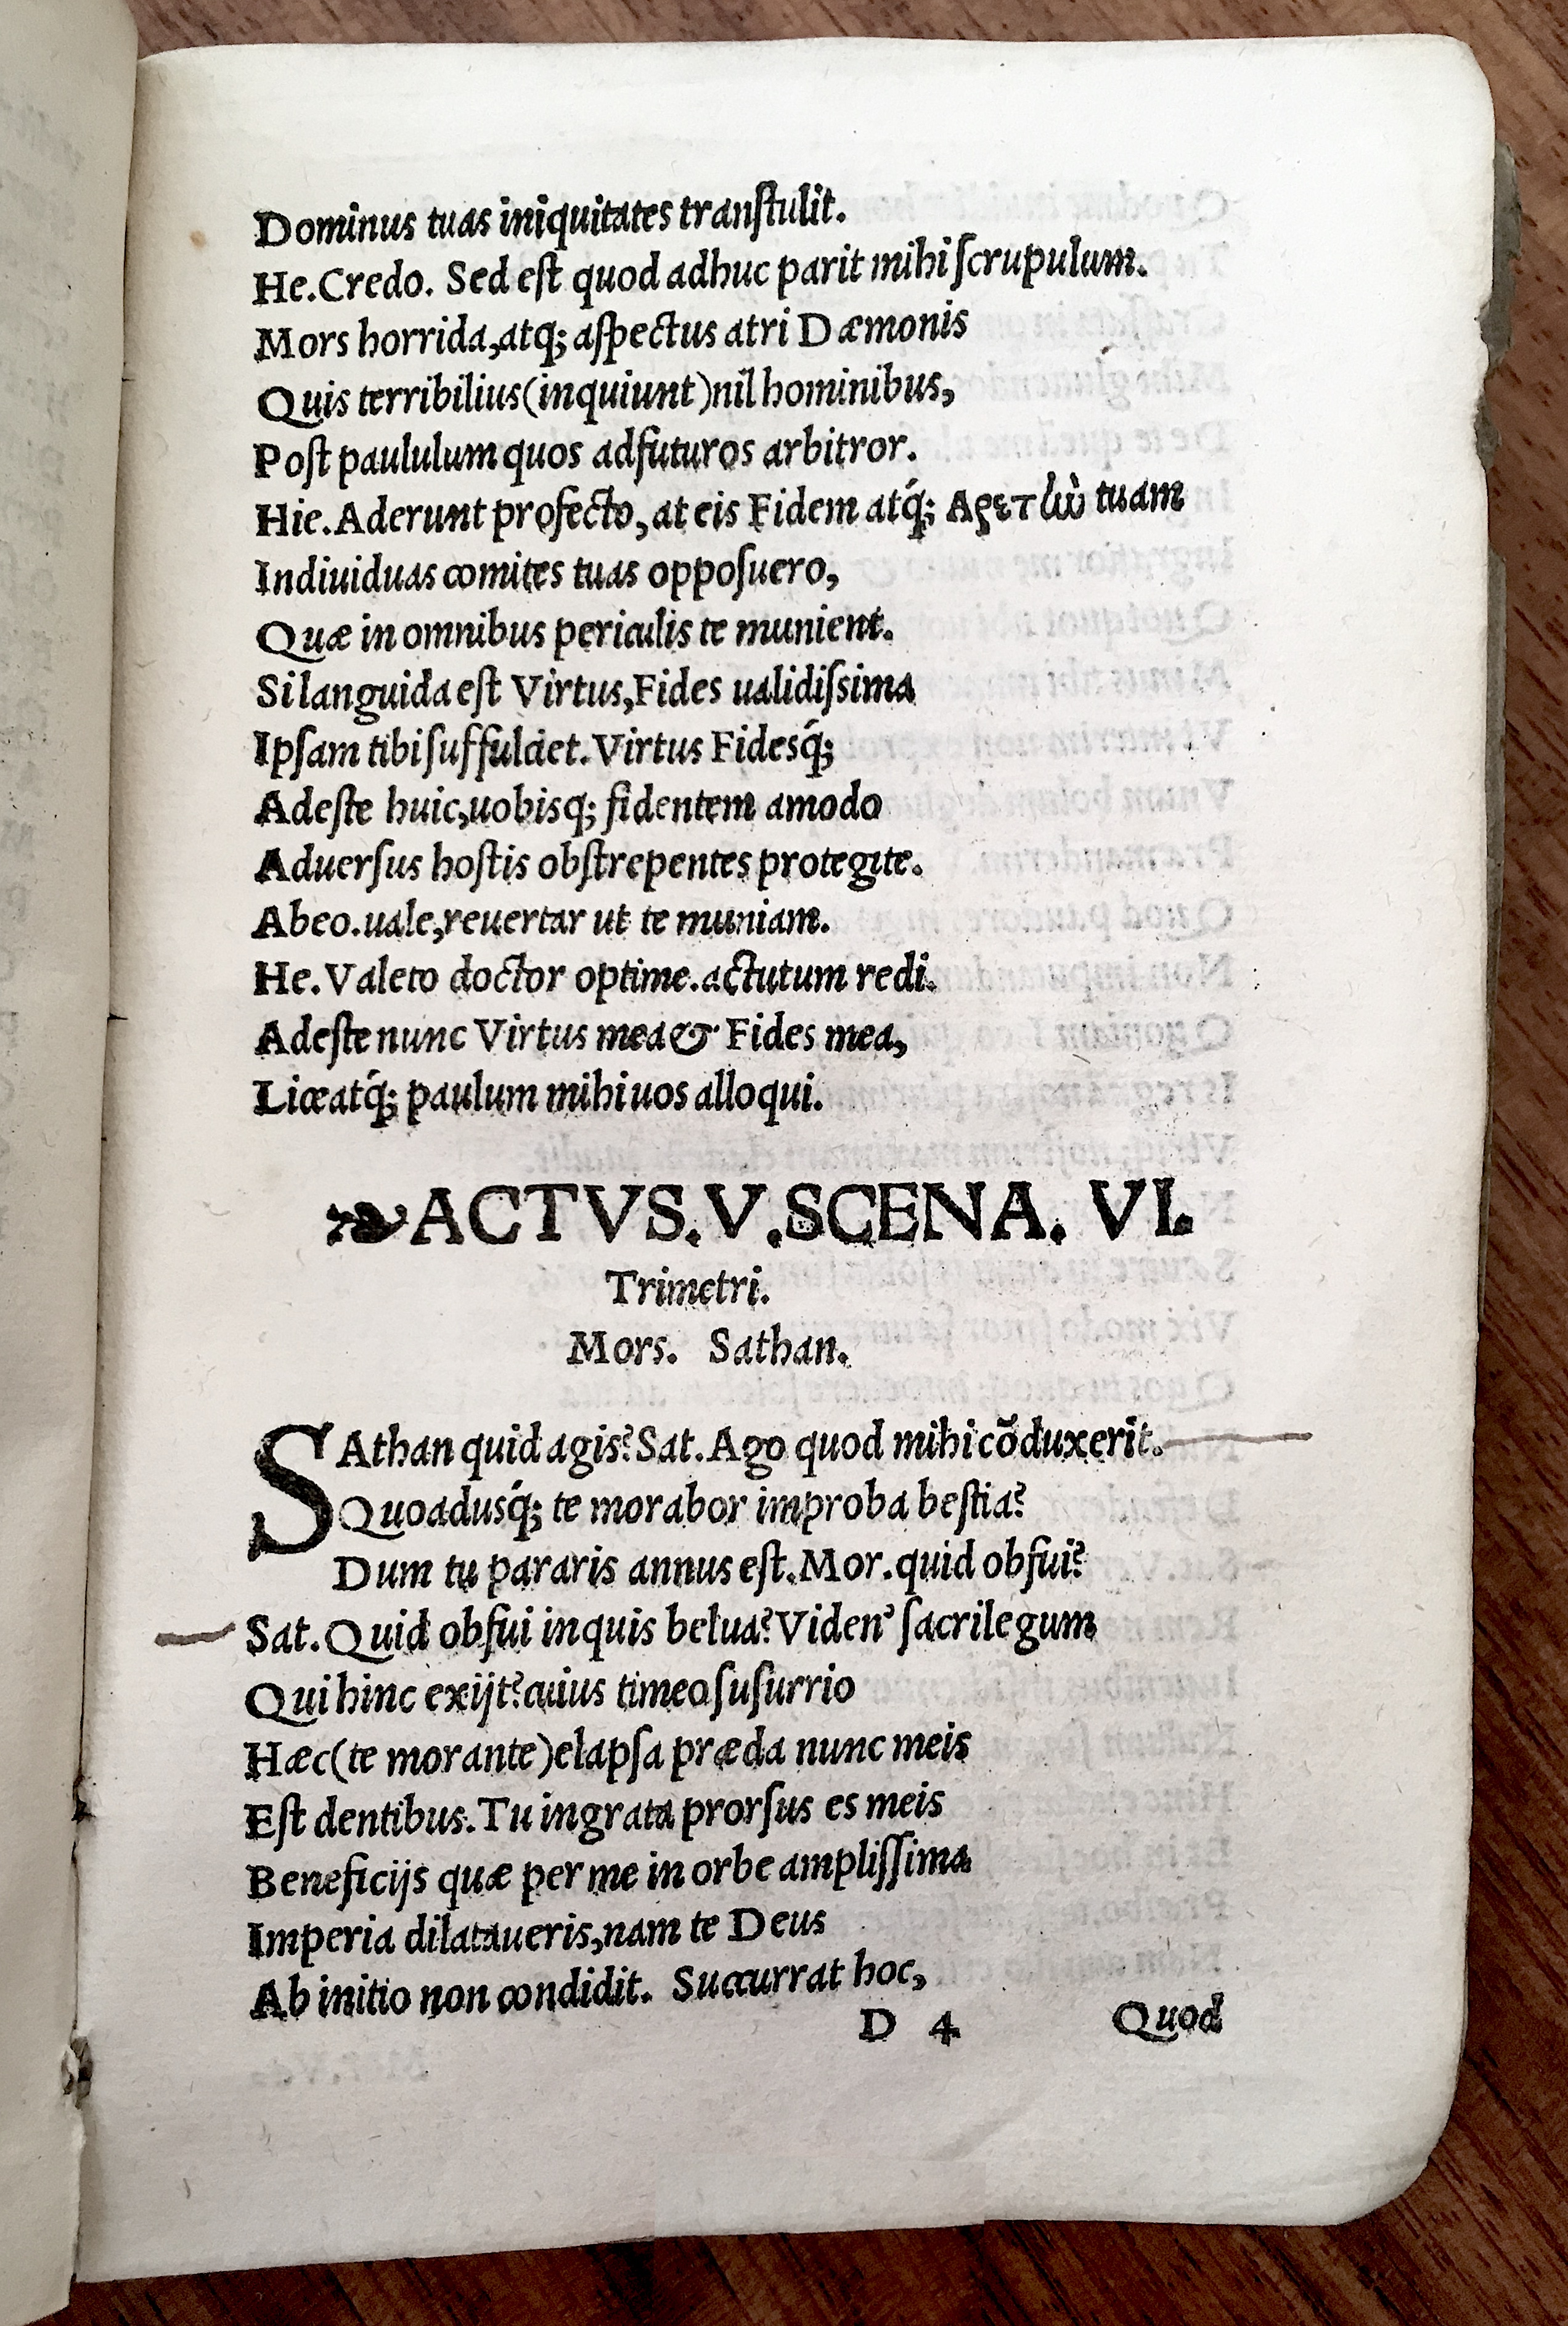 Dominus tuas iniquitates tranſtulit.
He.Credo. Sed eſt quod adhuc parit mihi ſcrupulum.
Mors horrida,atq; aſpectus atri Dæmonis
Quis terribilius(inquiunt)nil hominibus,
Poſt paululum quos adfuturos arbitror.
Hie.Aderunt profecto, at eis Fidem atq́; Αρετlὼ tuam
Indiuiduas comites tuas oppoſuero,
Quæ in omnibus periculis te munient.
Si languida eſt Virtus,Fides ualidiſsima
Ipſam tibi ſuffulciet. Virtus Fidesq́;
Adeſte huic,uobisq; fidentem amodo
Aduerſus hoſtis obſtrepentes protegite.
Abeo.uale,reuertar ut te muniam.
He.Valeto doctor optime.actutum redi.
Adeſte nunc Virtus mea & Fides mea,
Liceatq́; paulum mihi uos alloqui.
❧ACTVS.V.SCENA. VI.
Trimetri.
Mors. Sathan.
SAthan quid agis?Sat.Ago quod mihi cõduxerit.
Quoadusq́; te morabor improba beſtia?
Dum tu pararis annus eſt.Mor.quid obfui?
Sat.Quid obfui inquis belua?Viden' ſacrilegum
Qui hinc exijt?cuius timeo ſuſurrio
Hæc(te morante)elapſa præda nunc meis
Eſt dentibus.Tu ingrata prorſus es meis
Beneficijs quæ per me in orbe ampliſſima
Imperia dilataueris,nam te Deus
Ab initio non condidit. Succurrat hoc,
D 4 Quod